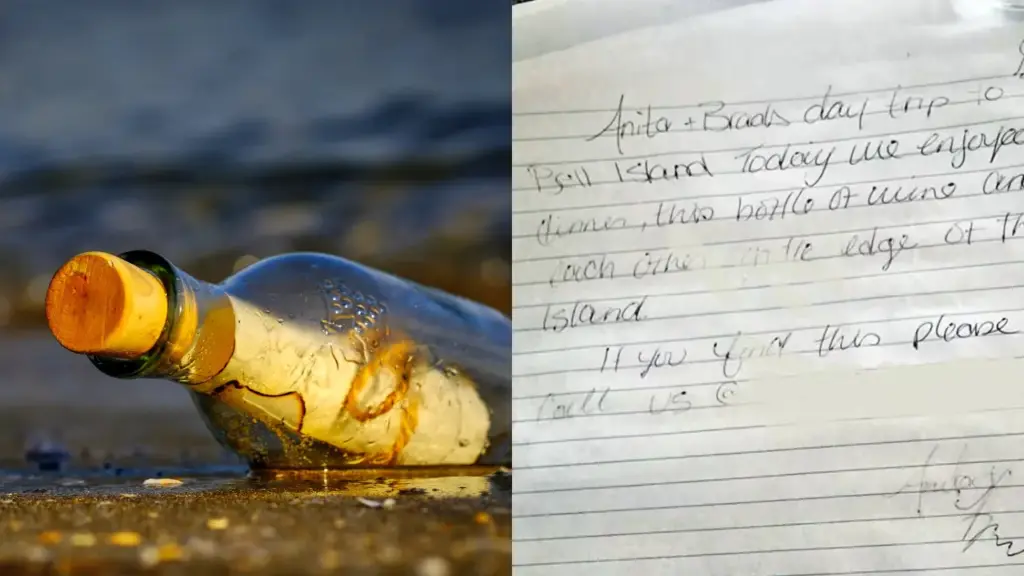 Anita + Brads day trip to
Bell Island Today we enjoyed
dinner, this bottle of wine and
each other on the edge of the
Island
If you find this please
call us @